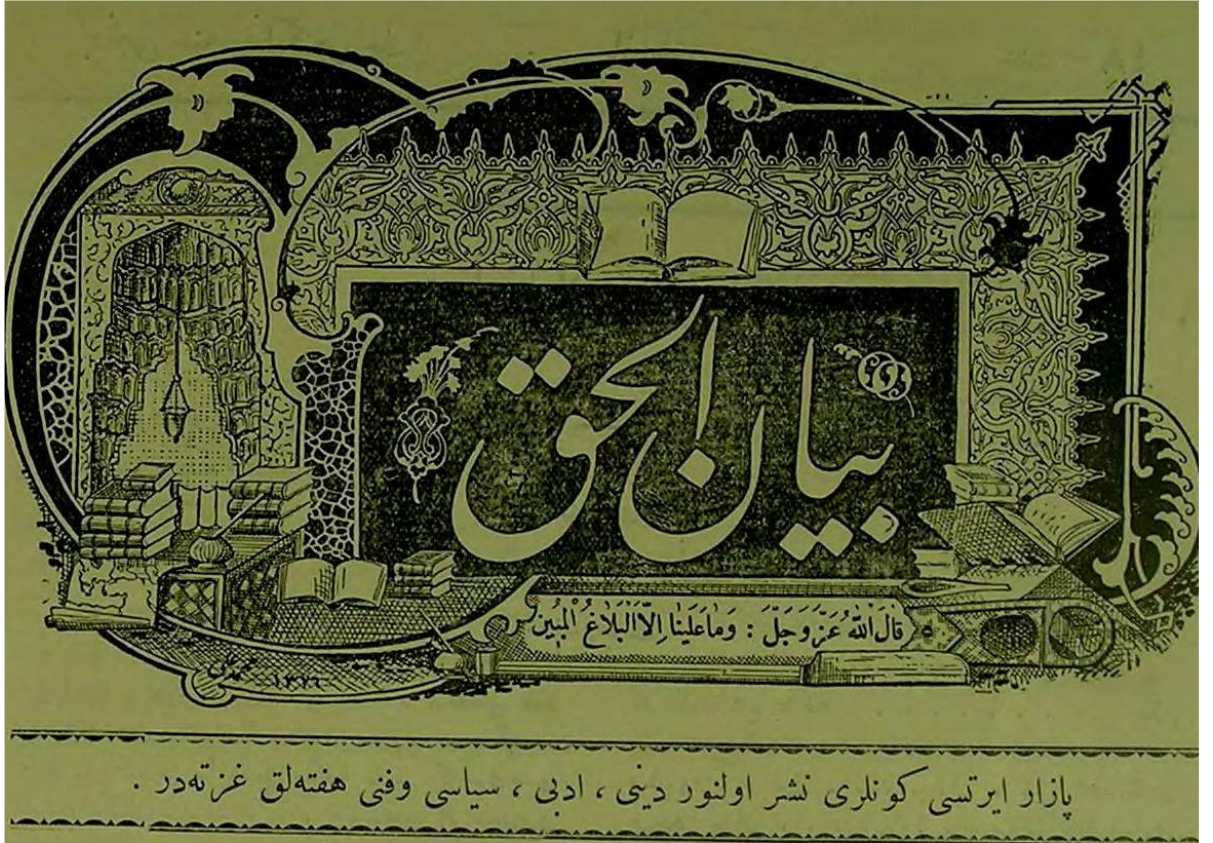 بيان الحق
قَالَ اللهُ عَزَّ وَجَلَّ : وَمَا عَلَيْنَا اِلَّا الْبَلَاغُ الْمُبِينُ
١٣٢٦
پازار ايرتسى كونلرى نشر اولنور دينى ، ادبى ، سياسى وفنى هفته‌لق غزته‌در .